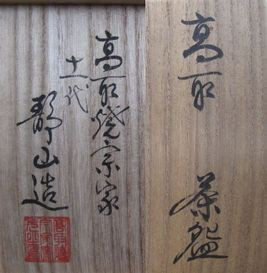 高取 茶盌
高取焼宗家
十一代
静山造